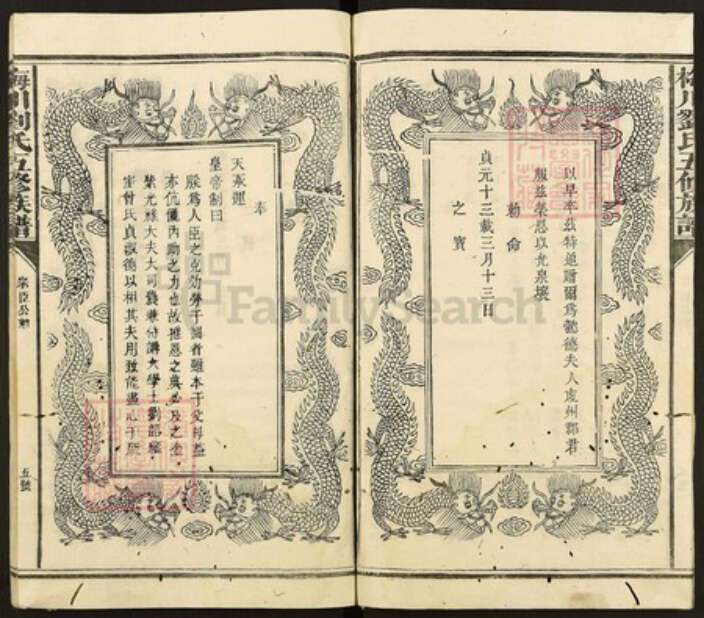 梅川劉氏五修族譜
以早卒茲特追贈爾爲懿德夫人虔州郡君
服茲榮恩以光泉壤
勅命
貞元十三載三月十三日
之寶
奉
天承運
皇帝制曰
朕爲人臣之克効勞于國者雖本于父母
亦伉儷內助之力也故推恩之典必及之
榮光祿大夫大司
曾氏貞淑德以相其夫用致能盡心于
梅川劉氏五修族譜
五號
FamilySearch